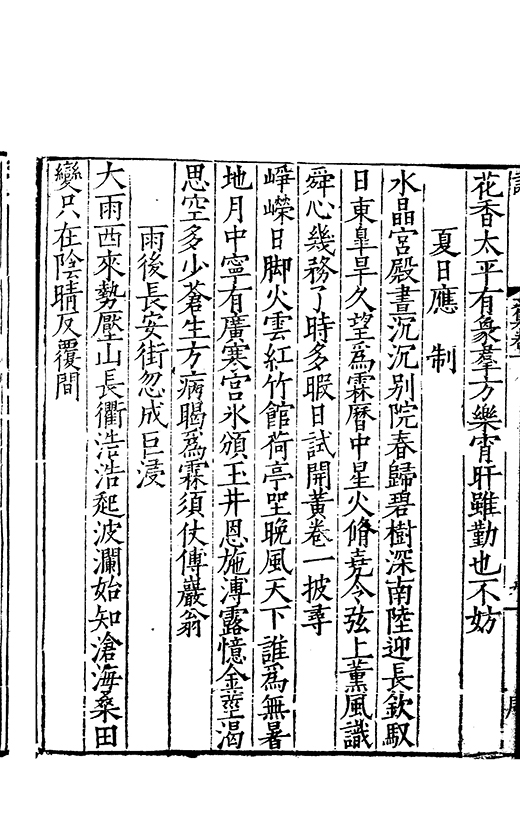 花香太平有象羣方樂宵旰雖勤也不妨
夏日應制
水晶宮殿晝沉沉別院春歸碧樹深南陸迎長欽馭
日東皐旱久望為霖曆中星火脩堯令弦上薰風識
舜心幾務了時多暇日試開黃卷一披尋
崢嶸日脚火雲紅竹館荷亭坐晩風天下誰為無暑
地月中寧有廣寒宮氷頒玉井恩施溥露憶金莖渴
思空多少蒼生方病暍為霖須仗傅巖翁
雨後長安街忽成巨浸
大雨西來勢壓山長衢浩浩起波瀾始知滄海桑田
變只在陰晴反覆間